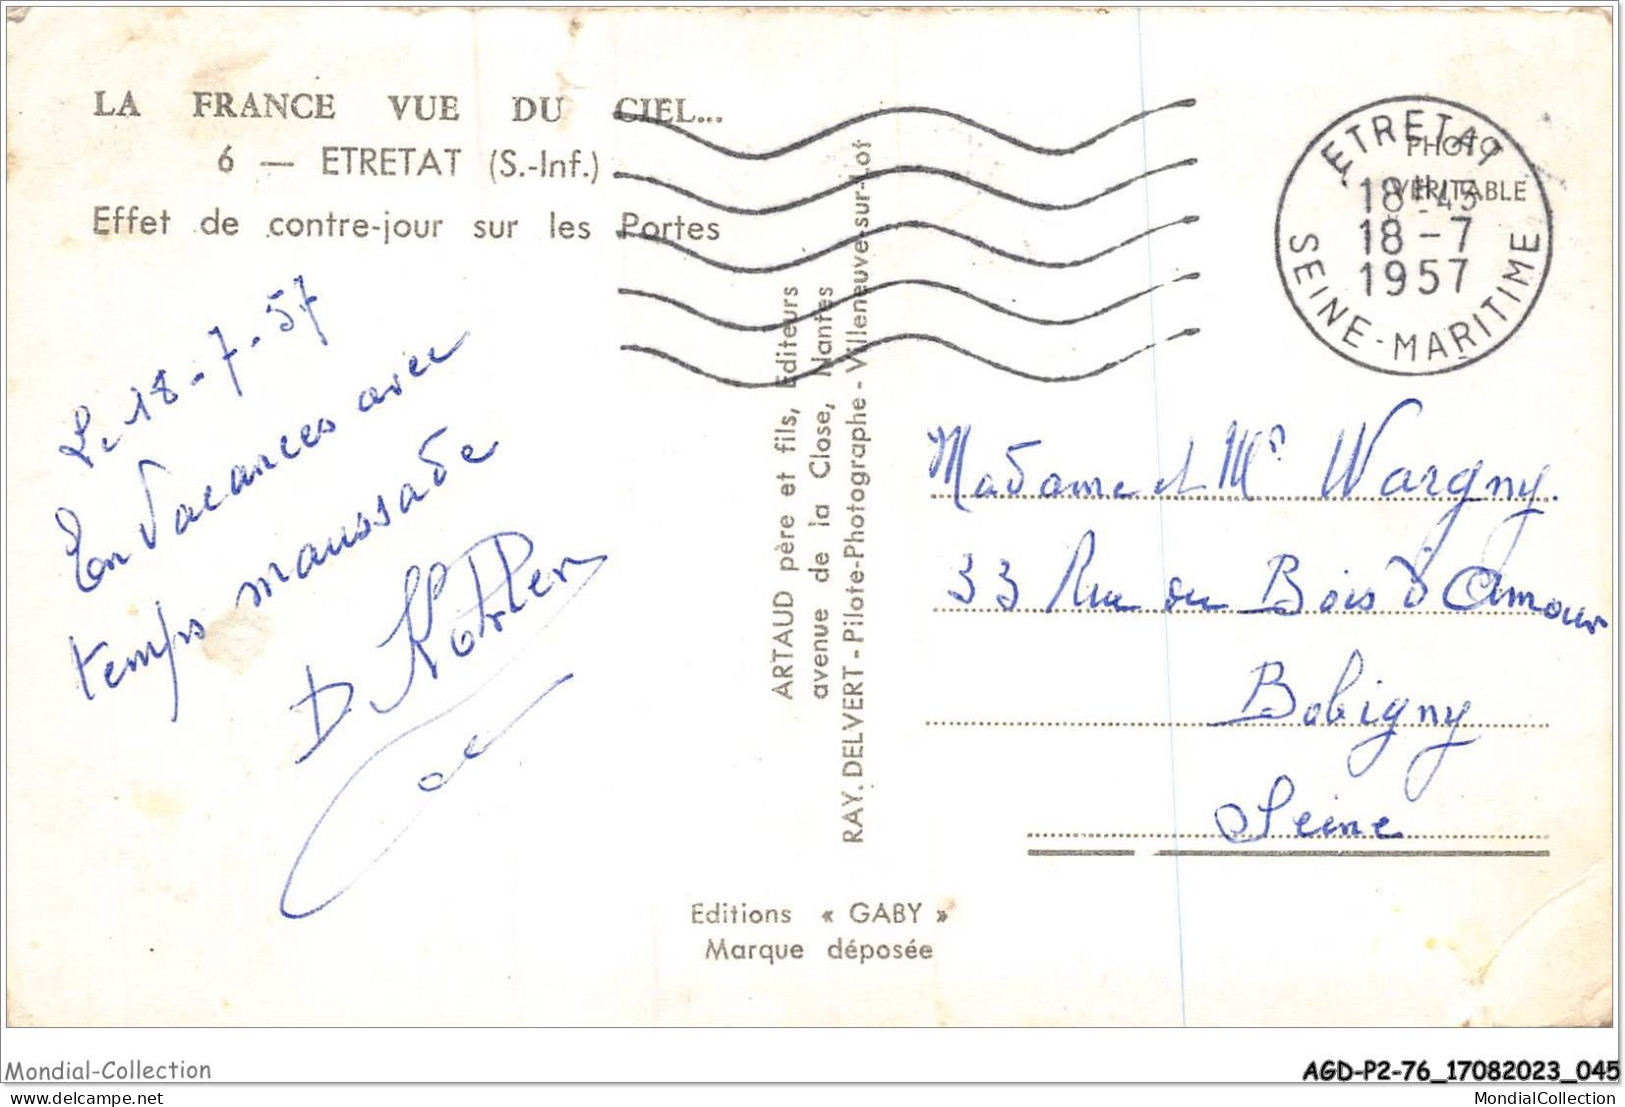 LA FRANCE VUE DU CIEL...
6 — ETRETAT (S.-Inf.)
Effet de contre-jour sur les Portes
Le 18-7-57
En Vacances avec
temps maussade
ARTAUD père et fils, Editeurs
avenue de la Close, Nantes
RAY. DELVERT - Pilote-Photographe - Villeneuve-sur-Lot
PHOTO
VERITABLE
ETRETAT
18H45
18-7
1957
SEINE-MARITIME
Madame et Mr Wargny.
33 Rue du Bois d'Amour
Bobigny
Seine
Editions « GABY »
Marque déposée
Mondial-Collection
AGD-P2-76_17082023_045
delcampe.net
MondialCollection